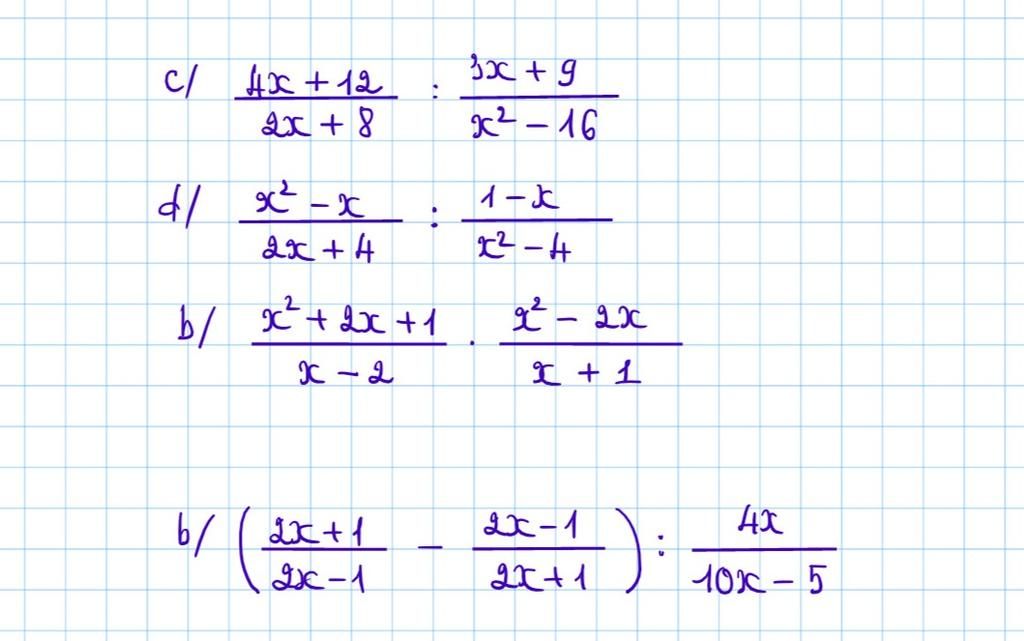 c/ (4x + 12)/(2x + 8) : (3x + 9)/(x² - 16)
d/ (x² - x)/(2x + 4) : (1 - x)/(x² - 4)
b/ (x² + 2x + 1)/(x - 2) . (x² - 2x)/(x + 1)
b/ ((2x + 1)/(2x - 1) - (2x - 1)/(2x + 1)) : 4x/(10x - 5)